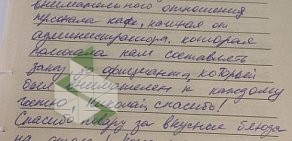 внимательного отношения
персонала кафе, начиная от
администратора, которая
помогала нам составлять
заказ до официанта, который
был внимателен к каждому
гостю, Николай, спасибо!
Спасибо повару за вкусные блюда